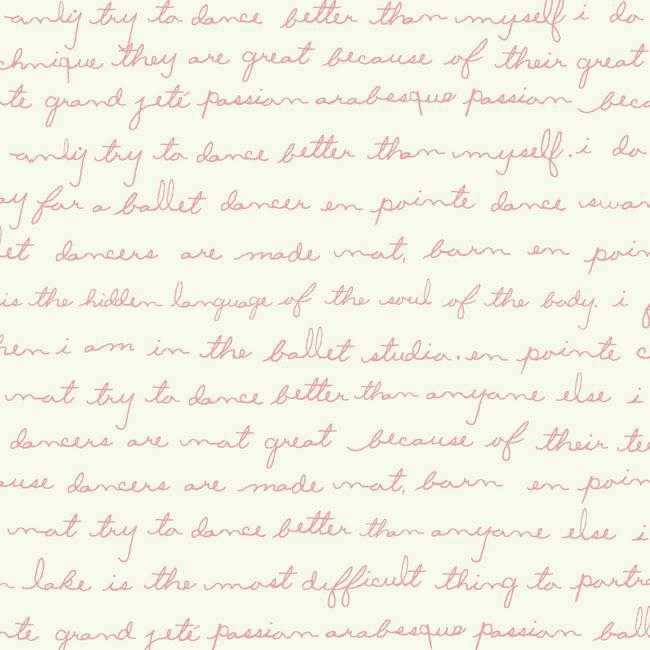 only try to dance better than myself i do
chnique they are great because of their great
te grand jeté passion arabesque passion beca
only try to dance better than myself. i do
ay for a ballet dancer en pointe dance swan
let dancers are made not, born en poin
is the hidden language of the soul of the body. i
hen i am in the ballet studio. en pointe
not try to dance better than anyone else i
dancers are not great because of their te
ause dancers are made not, born en poin
not try to dance better than anyone else i
n lake is the most difficult thing to portra
te grand jeté passion arabesque passion ball